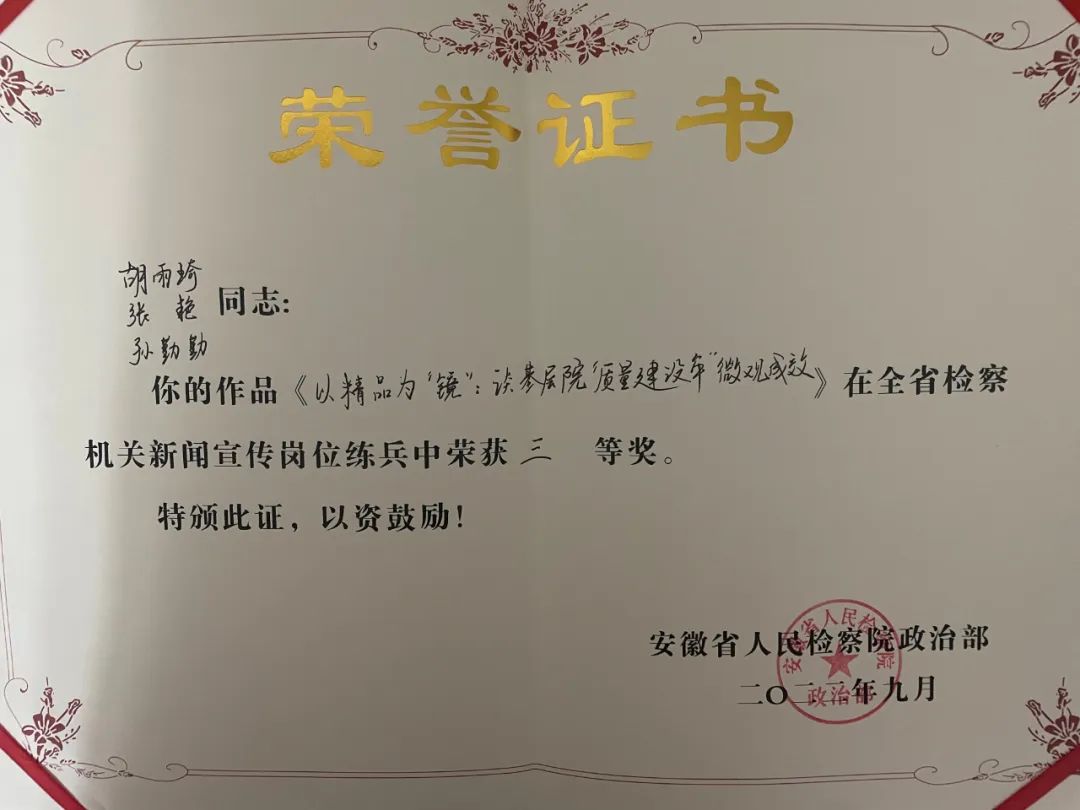 荣誉证书
胡雨琦
张艳 同志:
孙勤勤
你的作品《以精品为“镜”:谈基层院“质量建设年”微观成效》在全省检察
机关新闻宣传岗位练兵中荣获 三 等奖。
特颁此证,以资鼓励!
安徽省人民检察院政治部
二〇二二年九月
安徽省人民检察院
政治部